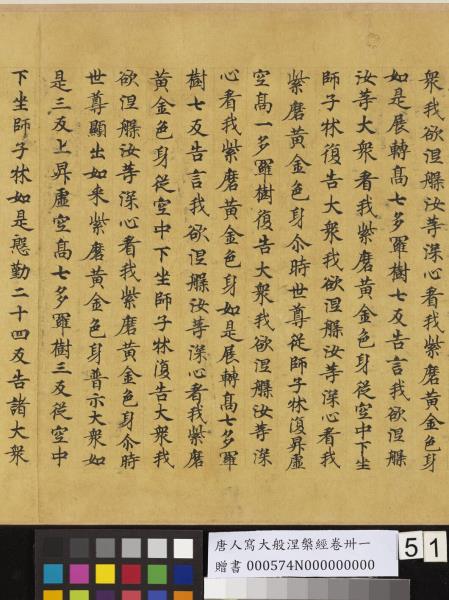 衆我欲涅槃汝等深心看我紫磨黃金色身
如是展轉高七多羅樹七反告言我欲涅槃
汝等大衆看我紫磨黃金色身從空中下坐
師子牀復告大衆我欲涅槃汝等深心看我
紫磨黃金色身尒時世尊從師子牀復昇虛
空高一多羅樹復告大衆我欲涅槃汝等深
心看我紫磨黃金色身如是展轉高七多羅
樹七反告言我欲涅槃汝等深心看我紫磨
黃金色身從空中下坐師子牀復告大衆我
欲涅槃汝等深心看我紫磨黃金色身尒時
世尊顯出如來紫磨黃金色身普示大衆如
是三反上昇虛空高七多羅樹三反從空中
下坐師子牀如是慇勤二十四反告諸大衆
唐人寫大般涅槃經卷卅一
贈書 000574N000000000
51